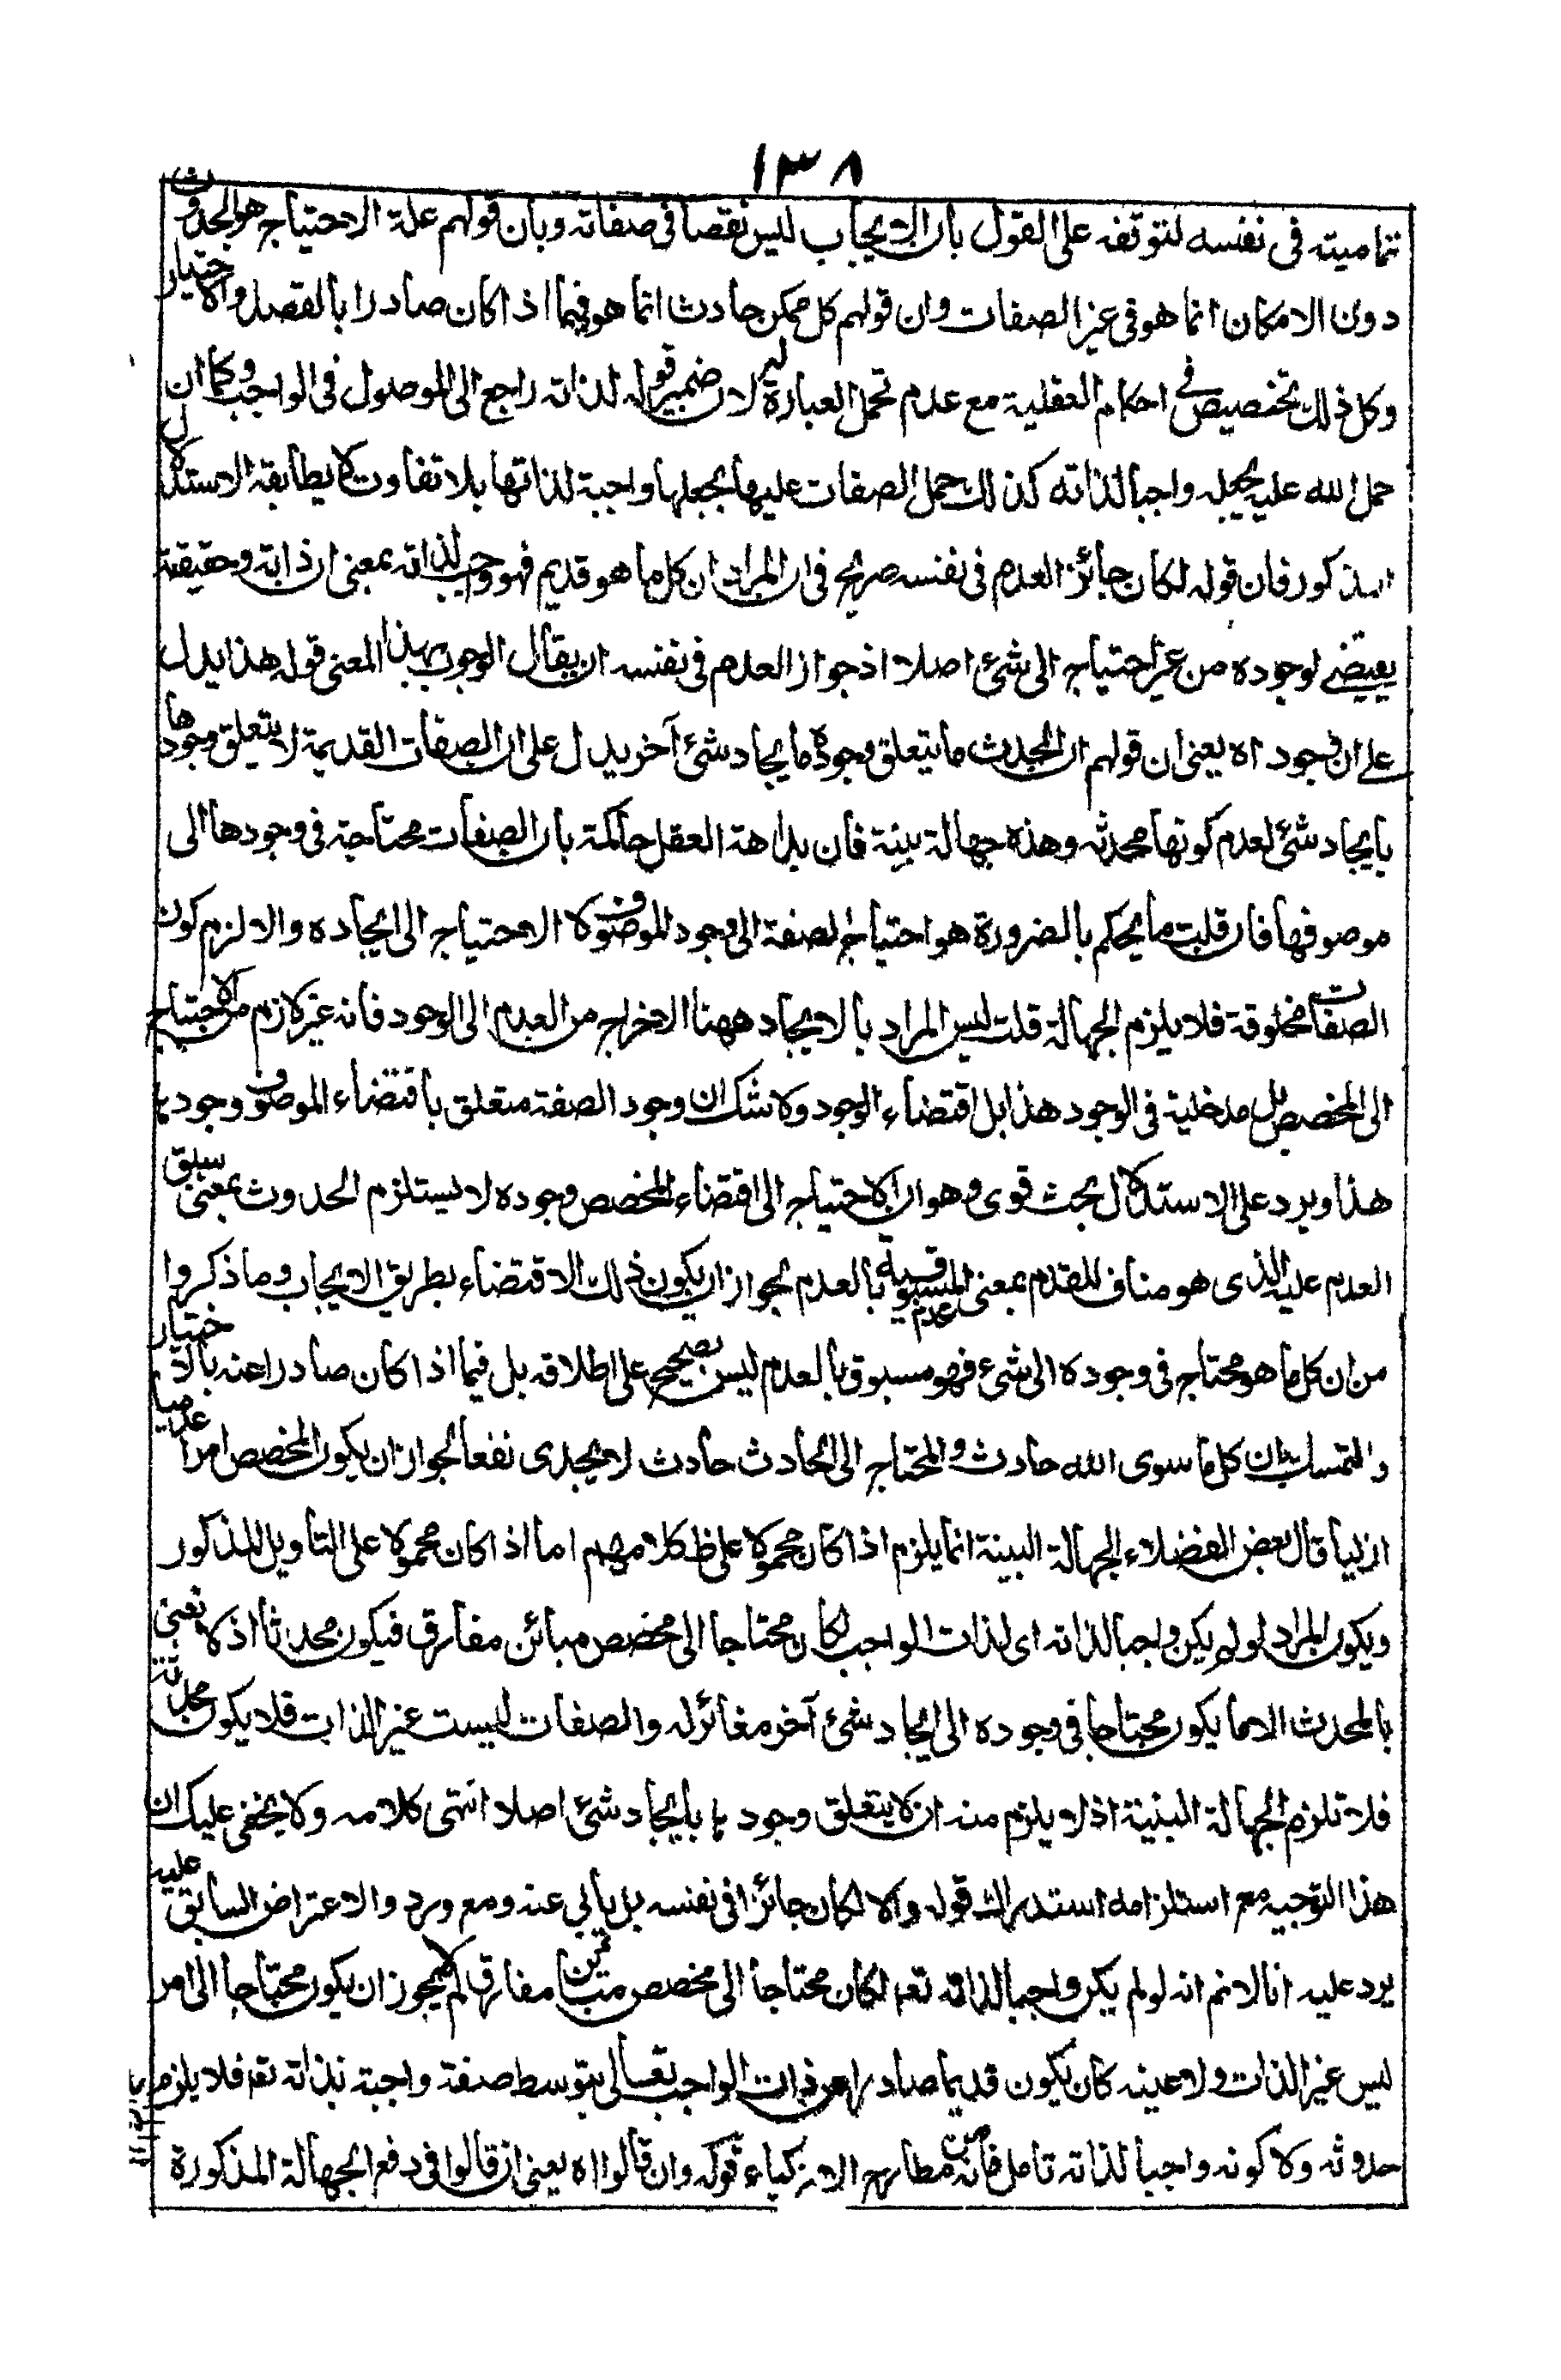 ١٣٨
تماميته فى نفسه لتوقفه على القول بان الايجاب ليس نقصا فى صفاته وبان قولهم علة الاحتياج هو الحدوث
دون الامكان انما هو فى غير الصفات وان قولهم كل ممكن حادث انما هو فيما اذا كان صادرا بالقصد والاختيار
وكل ذلك تخصيص فى احكام العقلية مع عدم تحمل العبارة له لان ضمير قوله لذاته راجع الى الموصول فى الواجب وكما ان
حمل الله عليه يجعله واجبا لذاته كذلك حمل الصفات عليها يجعلها واجبة لذاتها بلا تفاوت كما يطابقه الاستدلال
المذكور فان قوله لكان جائز العدم فى نفسه صريح فى ان المراد ان كل ما هو قديم فهو واجب لذاته بمعنى ان ذاته وحقيقته
يقتضے لوجوده من غير احتياج الى شئ اصلا اذ جواز العدم فى نفسه ان يقال الوجوب بهذا المعنى قوله هذا يدل
علے ان وجود اه يعنى ان قولهم ان المحدث ما يتعلق وجوده بايجاد شئ آخر يدل على ان الصفات القديمة لا يتعلق وجودها
بايجاد شئ لعدم كونها محدثه وهذه جهالة بينة فان بداهة العقل حاكمة بان الصفات محتاجة فى وجودها الى
موصوفها فان قلت ما يحكم بالضرورة هو احتياج الصفة الى وجود الموصوف لا الاحتياج الى ايجاده والا لزم كون
الصفات مخلوقة فلا يلزم الجهالة قلت ليس المراد بالايجاد ههنا الاخراج من العدم الى الوجود فانه غير لازم من الاحتياج
الى المخصص بل مدخلية فى الوجود هذا بل اقتضاء الوجود ولا شك ان وجود الصفة متعلق باقتضاء الموصوف وجودها
هذا ويرد على الاستدلال بحث قوى وهو ان الاحتياج الى اقتضاء المخصص وجوده لا يستلزم الحدوث بمعنى سبق
العدم عليه الذى هو مناف للقدم بمعنى عدم المسبوقية بالعدم لجواز ان يكون ذلك الاقتضاء بطريق الايجاب وما ذكروا
من ان كل ما هو محتاج فى وجوده الى شئ فهو مسبوق بالعدم ليس بصحيح على اطلاقه بل فيما اذا كان صادرا عنه بالاختيار
والتمسك بان كل ما سوى الله حادث والمحتاج الى الحادث حادث لا يجدى نفعا لجواز ان يكون المخصص امرا عدميا
ازليا قال بعض الفضلاء الجهالة البينة انما يلزم اذا كان محمولا على ظ كلامهم اما اذا كان محمولا على التأويل المذكور
ويكون المراد لو لم يكن واجبا لذاته اى لذات الواجب لكان محتاجا الى مخصص مبائن مفارق فيكون محدثا اذ لا نعنى
بالمحدث الا ما يكون محتاجا فى وجوده الى ايجاد شئ آخر مغائر له والصفات ليست غير الذات فلا يكون محدثة
فلا تلزم الجهالة البنية اذ لا يلزم منه ان لا يتعلق وجودها بايجاد شئ اصلا انتهى كلامه ولا يخفى عليك ان
هذا التوجيه مع استلزامه استدراك قوله والا لكان جائزا فى نفسه بل يأبى عنه ومع ورود الاعتراض السابق عليه
يرد عليه انا لا نم انه لو لم يكن واجبا لذاته تعہ لكان محتاجا الى مخصص مبائن مفارق لم لا يجوز ان يكون محتاجا الى امر
ليس غير الذات ولا عينه كان يكون قديما صادرا عن ذات الواجب تعالى بتوسط صفة واجبة بذاته تعہ فلا يلزم
حدوثه ولا كونه واجبا لذاته تامل فانه من مطارح الازكياء قوله وان قالوا اه يعنى ان قالوا فى دفع الجهالة المذكورة